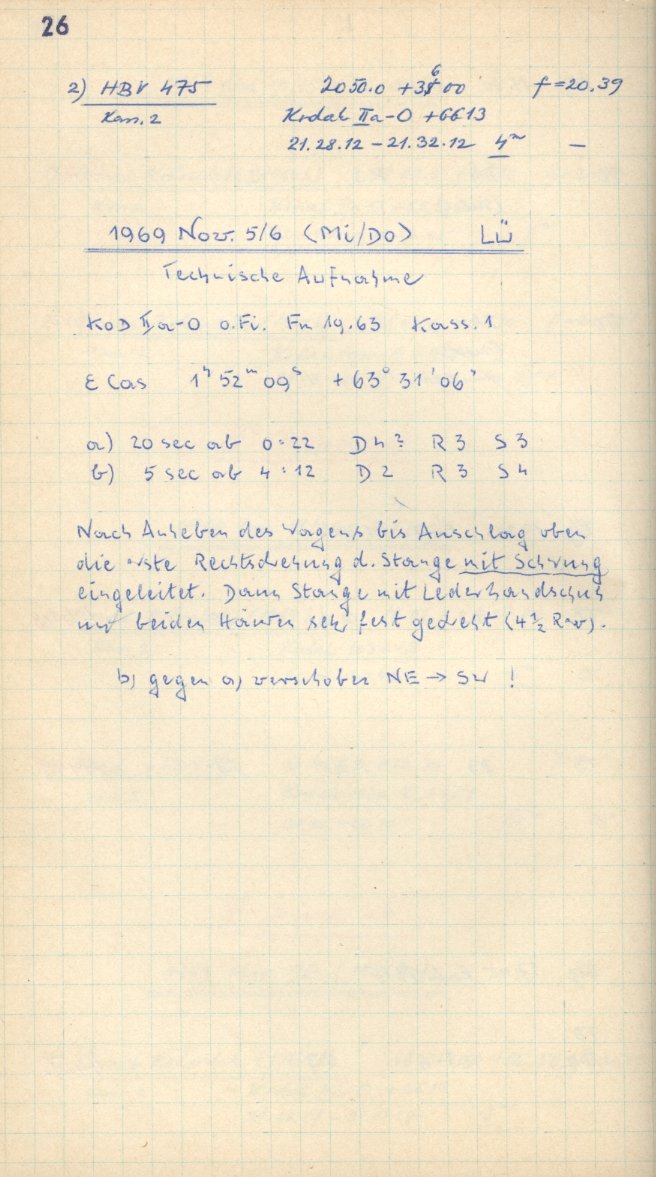 26
2) HBV 475 2050.0 +3600 f=20.39
Kass. 2 Kodak IIa-O +6613
21.28.12 – 21.32.12 4ᵐ —
1969 Nov. 5/6 (Mi/Do) LÜ
Technische Aufnahme
KOD IIa-O o.Fi. Fn 19.63 Kass. 1
ε Cas 1ʰ 52ᵐ 09ˢ +63° 31' 06"
a) 20 sec ab 0:22 D4? R3 S3
b) 5 sec ab 4:12 D2 R3 S4
Nach Anheben des Wagens bis Anschlag oben
die erste Rechtsdrehung d. Stange mit Schwung
eingeleitet. Dann Stange mit Lederhandschuh
mit beiden Händen sehr fest gedreht (4 ½ Rev).
b) gegen a) verschoben NE → SW !